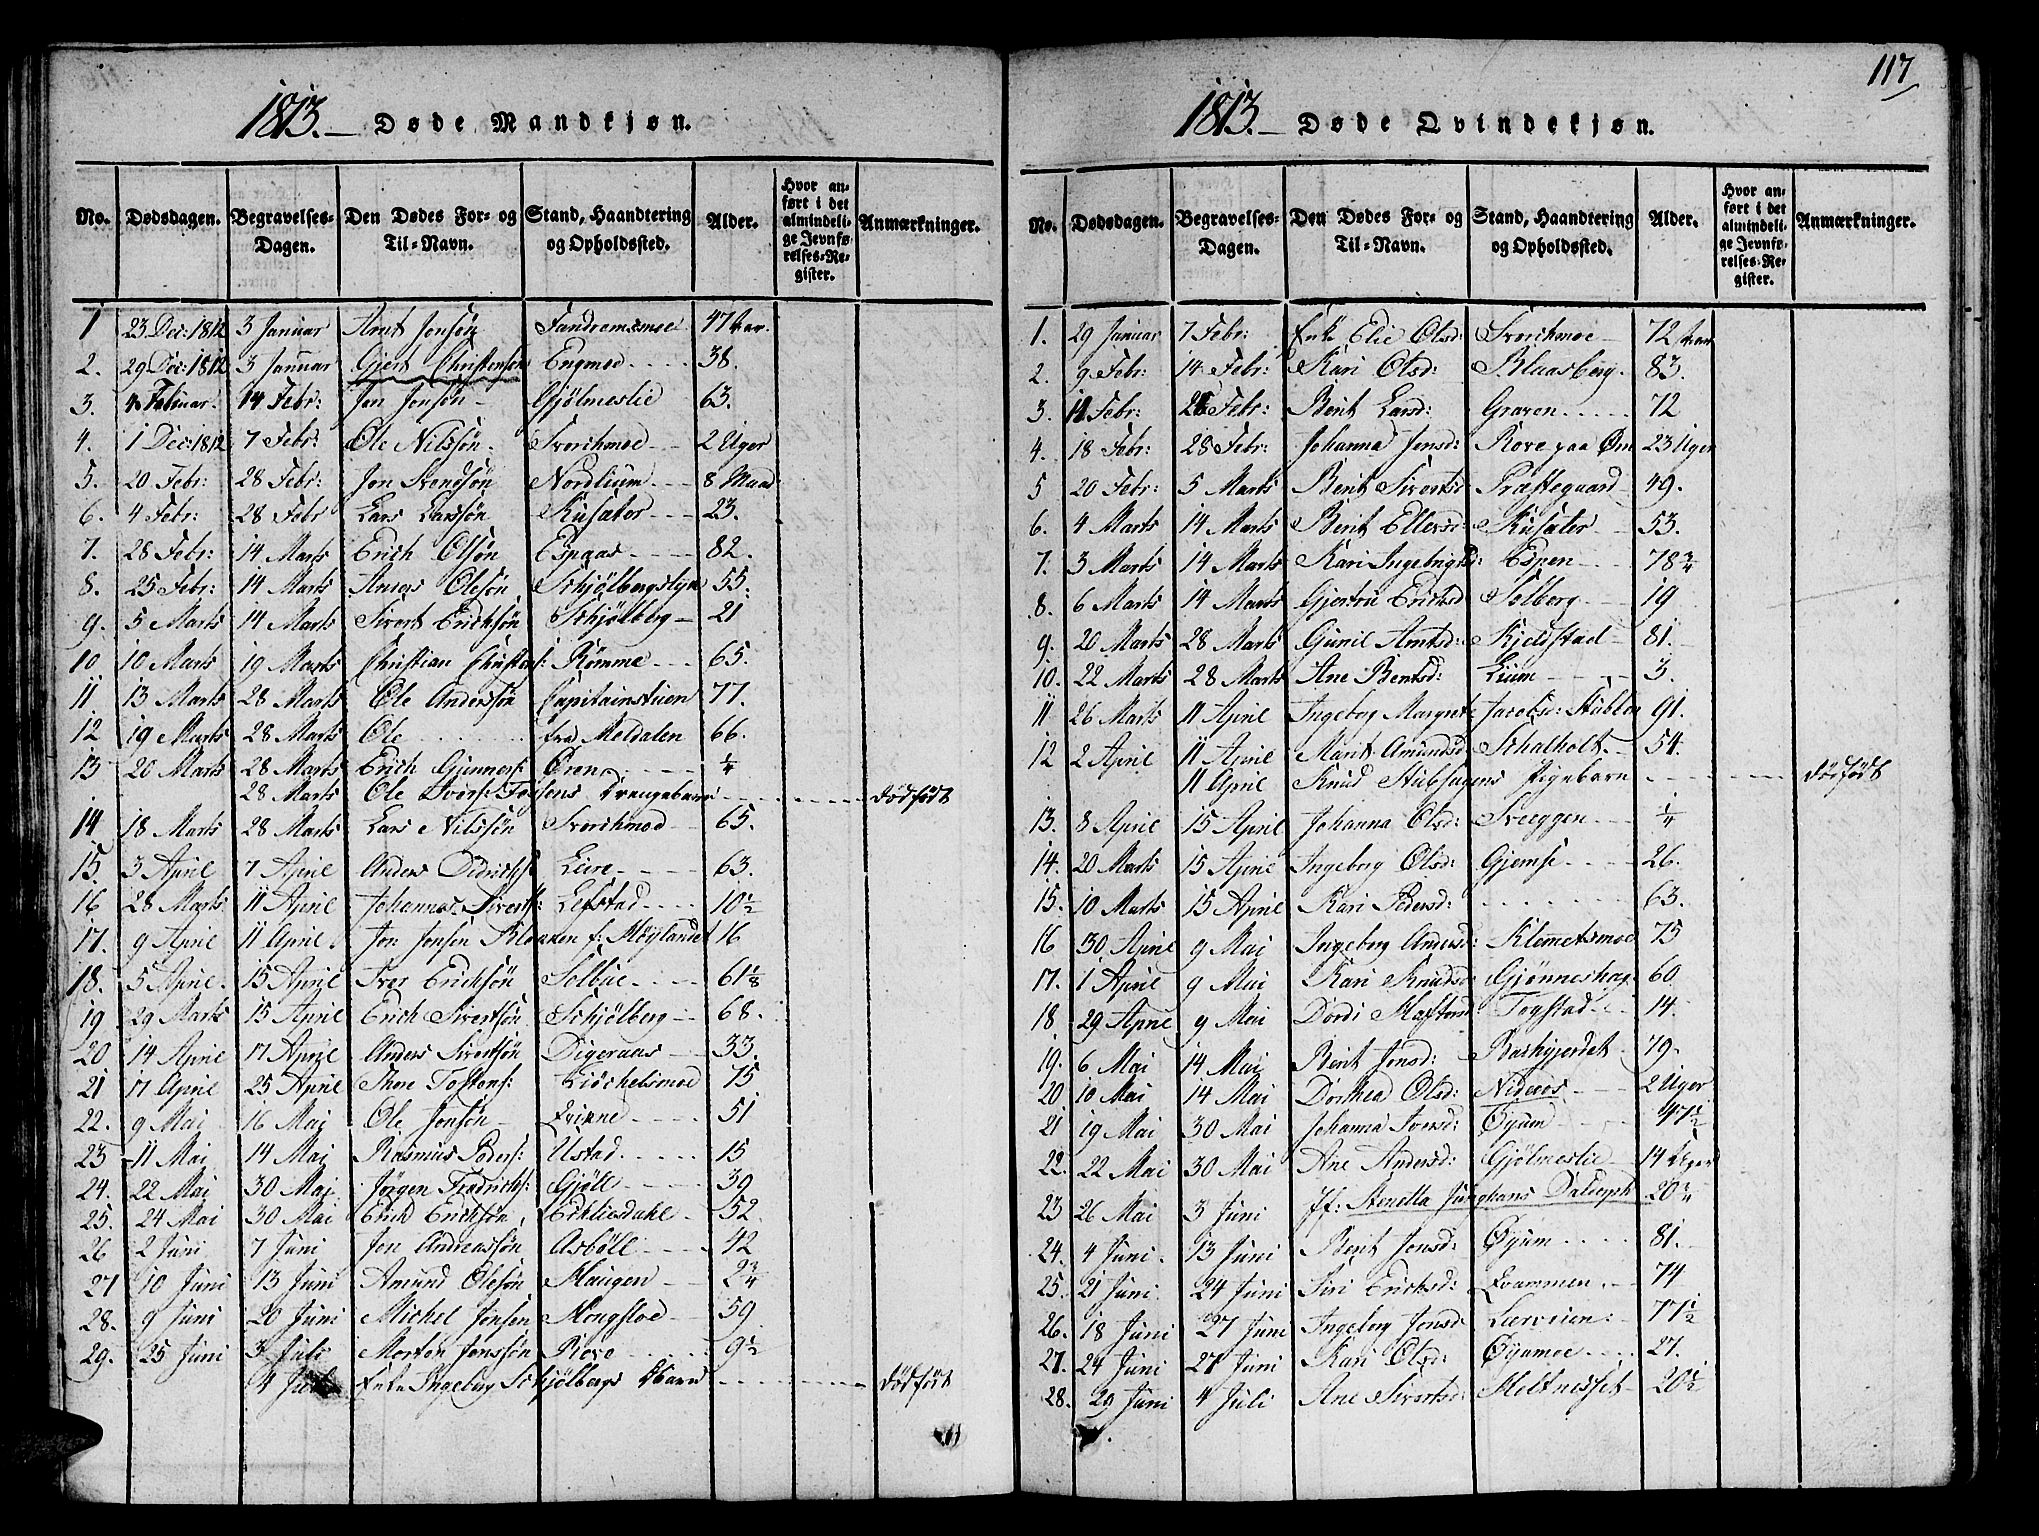 1813. Døde Mandkjøn.
No. Dødsdagen. Begravelses-Dagen. Den Dødes For- og Til-Navn. Stand, Haandtering og Opholdssted. Alder. Hvor anført i det almindelige Jevnførelses-Register. Anmærkninger.
1 23 Dec: 1812 3 Januar Arnt Jonsön Fandremsmoe 47 Aar.
2. 29 Dec: 1812 3 Januar Gjert Christensön Engmoe 38.
3. 4 Februar. 14 Febr: Jon Jonsön Gjölmeslie 63.
4. 1 Dec: 1812 7 Febr: Ole Nilssön Svorchmoe 2 Uger
5. 20 Febr: 28 Febr: Jon Svendsön Nordlium 8 Maad
6. 4 Febr: 28 Febr Lars Larssön Kusæter 23.
7. 28 Febr: 14 Marts Erich Olsön Espaas 82.
8. 25 Febr: 14 Marts Anders Olesön Schjölbergslyk 55.
9. 5 Marts 14 Marts Sivert Erichsön Schjölberg 21
10 10 Marts 19 Marts Christian Christens: Römme 65.
11. 13 Marts 28 Marts Ole Anderssön Capitainstuen 77.
12 19 Marts 28 Marts Ole fra Meldalen 66.
13 20 Marts 28 Marts Erich Gunners: Øren 1/4
28 Marts Ole Drengebarn dödfödt
14 18 Marts 28 Marts Lars Nilssön Svorchmoe 65.
15 3 April 7 April Anders Didrichs: Leire 63.
16 28 Marts 11 April Johannes Siverts: Lefstad 10 1/2
17. 9 April 11 April. Jon Jonsen Blokken f: Möglandet 16
18. 5 April. 15 April Iver Erichsön Solbue 61 1/8
19 29 Marts 15 April Erich Sivertsön Schjölberg 68.
20 14 April 17 April Anders Sivertsön Digeraas 33.
21 17 April 25 April Thore Tostens: Liöchelsmoe 75
22. 9 Mai 16 Mai Ole Jonsön Evinne 51
23 11 Mai 14 Mai Rasmus Peders: Ustad 15
24. 22 Mai 30 Mai Jörgen Fredrichs: Gjöll 39
25. 24 Mai 30 Mai Erich Erichsön Echlisdahl 52.
26 2 Juni 7 Juni Jon Andreassön Asböll 42
27 10 Juni 13 Juni Amund Olesön Haugen 2 3/4
28. 9 Juni 20 Juni Michel Jonsen Mongsloe 59.
29. 25 Juni 3 Juli Morten Jonssön Rove 9 1/2
4 Juli Enke Ingeborg Schjölbergs Barn dödfödt
117
1813. Døde Qvindekjøn.
No. Dødsdagen. Begravelses-Dagen. Den Dødes For- og Til-Navn. Stand, Haandtering og Opholdssted. Alder. Hvor anført i det almindelige Jevnførelses-Register. Anmærkninger.
1. 29 Januar 7 Febr: Enke Elie Olsd: Svorchmoe 72 Aar
2. 9 Febr: 14 Febr: Kari Olsd: Blaasberg 83.
3. 11 Febr: 21 Febr: Berit Larsd: Graven 72
4. 18 Febr: 28 Febr: Johanna Jensd: Rove paa Øien 23 Uger
5 20 Febr: 5 Marts Berit Sivertsd: Præstegaard 49.
6. 4 Marts 14 Marts Berit Ellevsd: Kusæter 53.
7. 3 Marts 14 Marts Kari Ingebrigtsd: Espen 78 3/4
8. 6 Marts 14 Marts Gjertru Erichsd Solberg 19
9. 20 Marts 28 Marts Gunil Arntsd: Kjeldstad 81.
10. 22 Marts 28 Marts Ane Bentsd: Lium 3.
11 26 Marts 11 April Ingeborg Margrete Jacobsd: Hübben 91.
12 2 April 11 April Marit Amundsd: Schalholt 54.
11 April Knud Stubhagens Pigebarn dödfödt
13. 8 April 15 April Johanna Olsd: Sveeggen 1/4
14. 20 Marts 15 April Ingeborg Olsd: Gjemse 26.
15. 10 Marts 15 April Kari Pedersd: 63.
16 30 April 9 Mai Ingeborg Andersd: Klemetsmoe 75
17. 1 April 9 Mai Kari Knudsd Gjönneshag 60
18. 29 April 9 Mai Dordi Togstad 14.
19. 6 Mai 14 Mai Berit Jonsd: Barhgjerdet 79.
20 10 Mai 14 Mai Dorthea Olsd: Nideros 2 Uger
21 19 Mai 30 Mai Johanna Iversd: Øyum 47 1/2
22. 22 Mai 30 Mai Ane Andersd: Gjölmeslie 14 Uger
23 26 Mai 3 Juni Jf: Anetta Junghans Dalseph 20 3/4
24. 4 Juni. 13 Juni Berit Jonsd: Øyum 81.
25. 21 Juni 24 Juni Siri Erichsd: Evammen 74
26. 18 Juni 27 Juni Ingeborg Jonsd Lærveien 77 1/2
27. 24 Juni 27 Juni Kari Olsd: Øyumoe 27.
28. 29 Juni 4 Juli Ane Sivertsd: Holtnesset 20 1/2